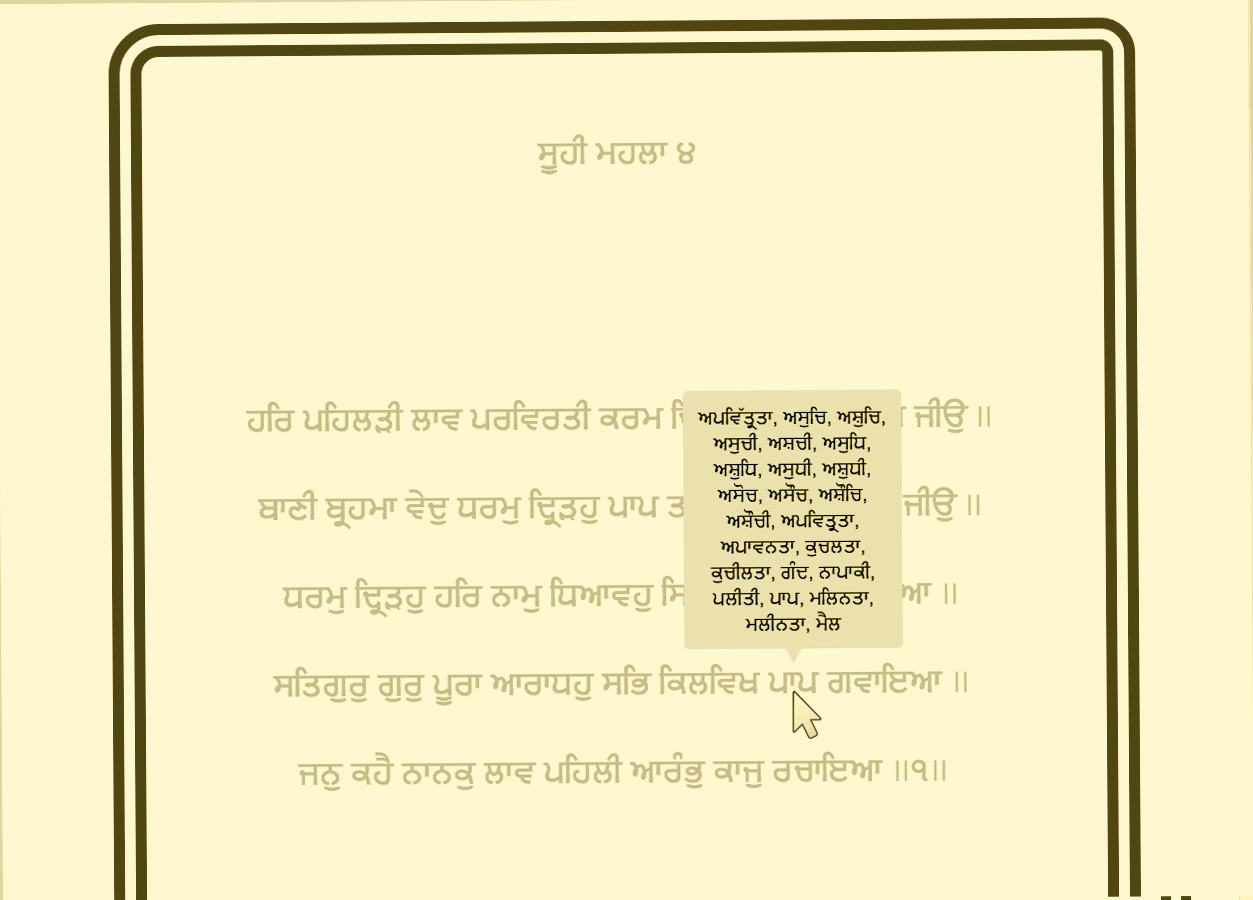 ਸੂਹੀ ਮਹਲਾ ੪
ਹਰਿ ਪਹਿਲੜੀ ਲਾਵ ਪਰਵਿਰਤੀ ਕਰਮ ਜੀਉ ॥
ਬਾਣੀ ਬ੍ਰਹਮਾ ਵੇਦੁ ਧਰਮੁ ਦ੍ਰਿੜਹੁ ਪਾਪ ਜੀਉ ॥
ਧਰਮੁ ਦ੍ਰਿੜਹੁ ਹਰਿ ਨਾਮੁ ਧਿਆਵਹੁ ॥
ਅਪਵਿੱਤ੍ਰਤਾ, ਅਸੁਚਿ, ਅਸ਼ੁਚਿ,
ਅਸੁਚੀ, ਅਸ਼ਚੀ, ਅਸੁਧਿ,
ਅਸ਼ੁਧਿ, ਅਸੁਧੀ, ਅਸ਼ੁਧੀ,
ਅਸੋਚ, ਅਸੌਚ, ਅਸ਼ੌਚਿ,
ਅਸ਼ੌਚੀ, ਅਪਵਿਤ੍ਰਤਾ,
ਅਪਾਵਨਤਾ, ਕੁਚਲਤਾ,
ਕੁਚੀਲਤਾ, ਗੰਦ, ਨਾਪਾਕੀ,
ਪਲੀਤੀ, ਪਾਪ, ਮਲਿਨਤਾ,
ਮਲੀਨਤਾ, ਮੈਲ
ਸਤਿਗੁਰੁ ਗੁਰੁ ਪੂਰਾ ਆਰਾਧਹੁ ਸਭਿ ਕਿਲਵਿਖ ਪਾਪ ਗਵਾਇਆ ॥
ਜਨੁ ਕਹੈ ਨਾਨਕੁ ਲਾਵ ਪਹਿਲੀ ਆਰੰਭੁ ਕਾਜੁ ਰਚਾਇਆ ॥੧॥